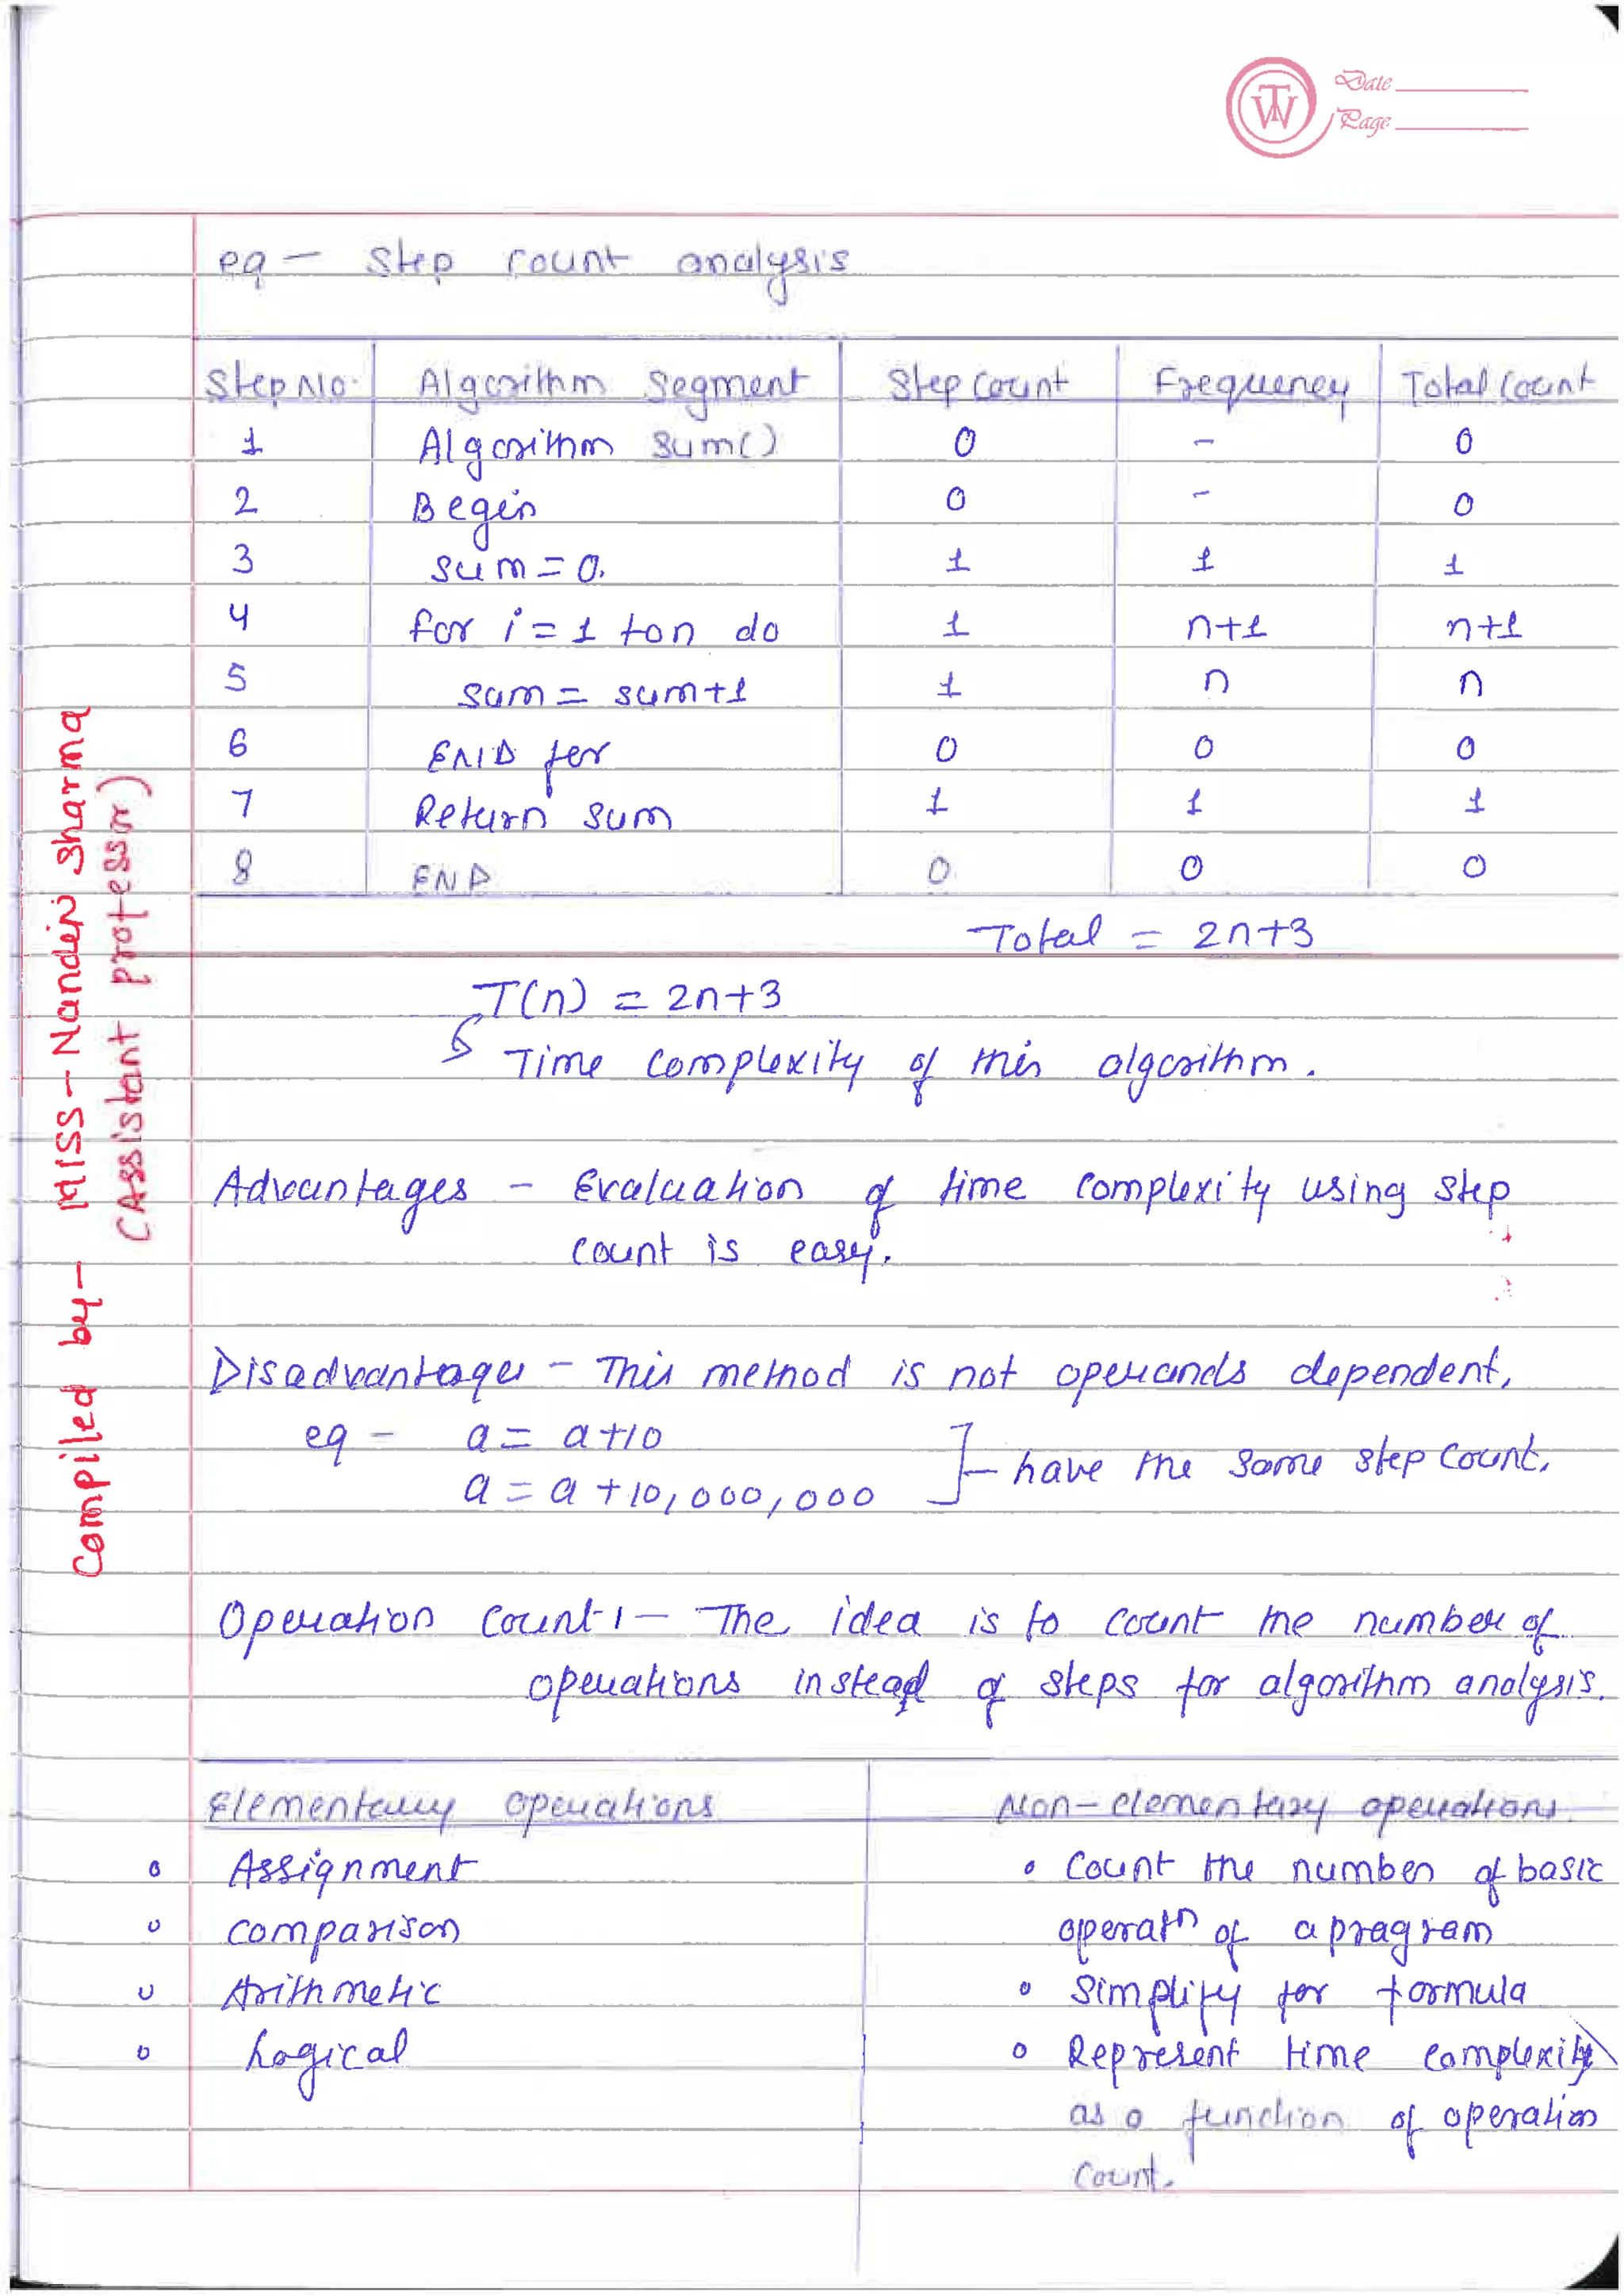 TW
Date
Page
eg - Step count analysis
Step No. Algorithm Segment Step Count Frequency Total Count
1 Algorithm Sum() 0 - 0
2 Begin 0 - 0
3 sum = 0. 1 1 1
4 for i = 1 to n do 1 n+1 n+1
5 sum = sum+1 1 n n
6 END for 0 0 0
7 Return sum 1 1 1
8 END 0 0 0
Total = 2n+3
T(n) = 2n+3
Time Complexity of this algorithm.
Advantages - Evaluation of time complexity using step
count is easy.
Disadvantages - This method is not operands dependent,
eg - a = a+10
a = a+10,000,000
have the same step count.
Operation Count :- The idea is to count the number of
operations instead of steps for algorithm analysis.
Elementary operations Non-elementary operations.
• Assignment
• Comparison
• Arithmetic
• Logical
• Count the number of basic
operatn of a program
• Simplify for formula
• Represent time complexity
as a function of operation
Count.
Compiled by - MISS - Nandini Sharma
(Assistant professor)